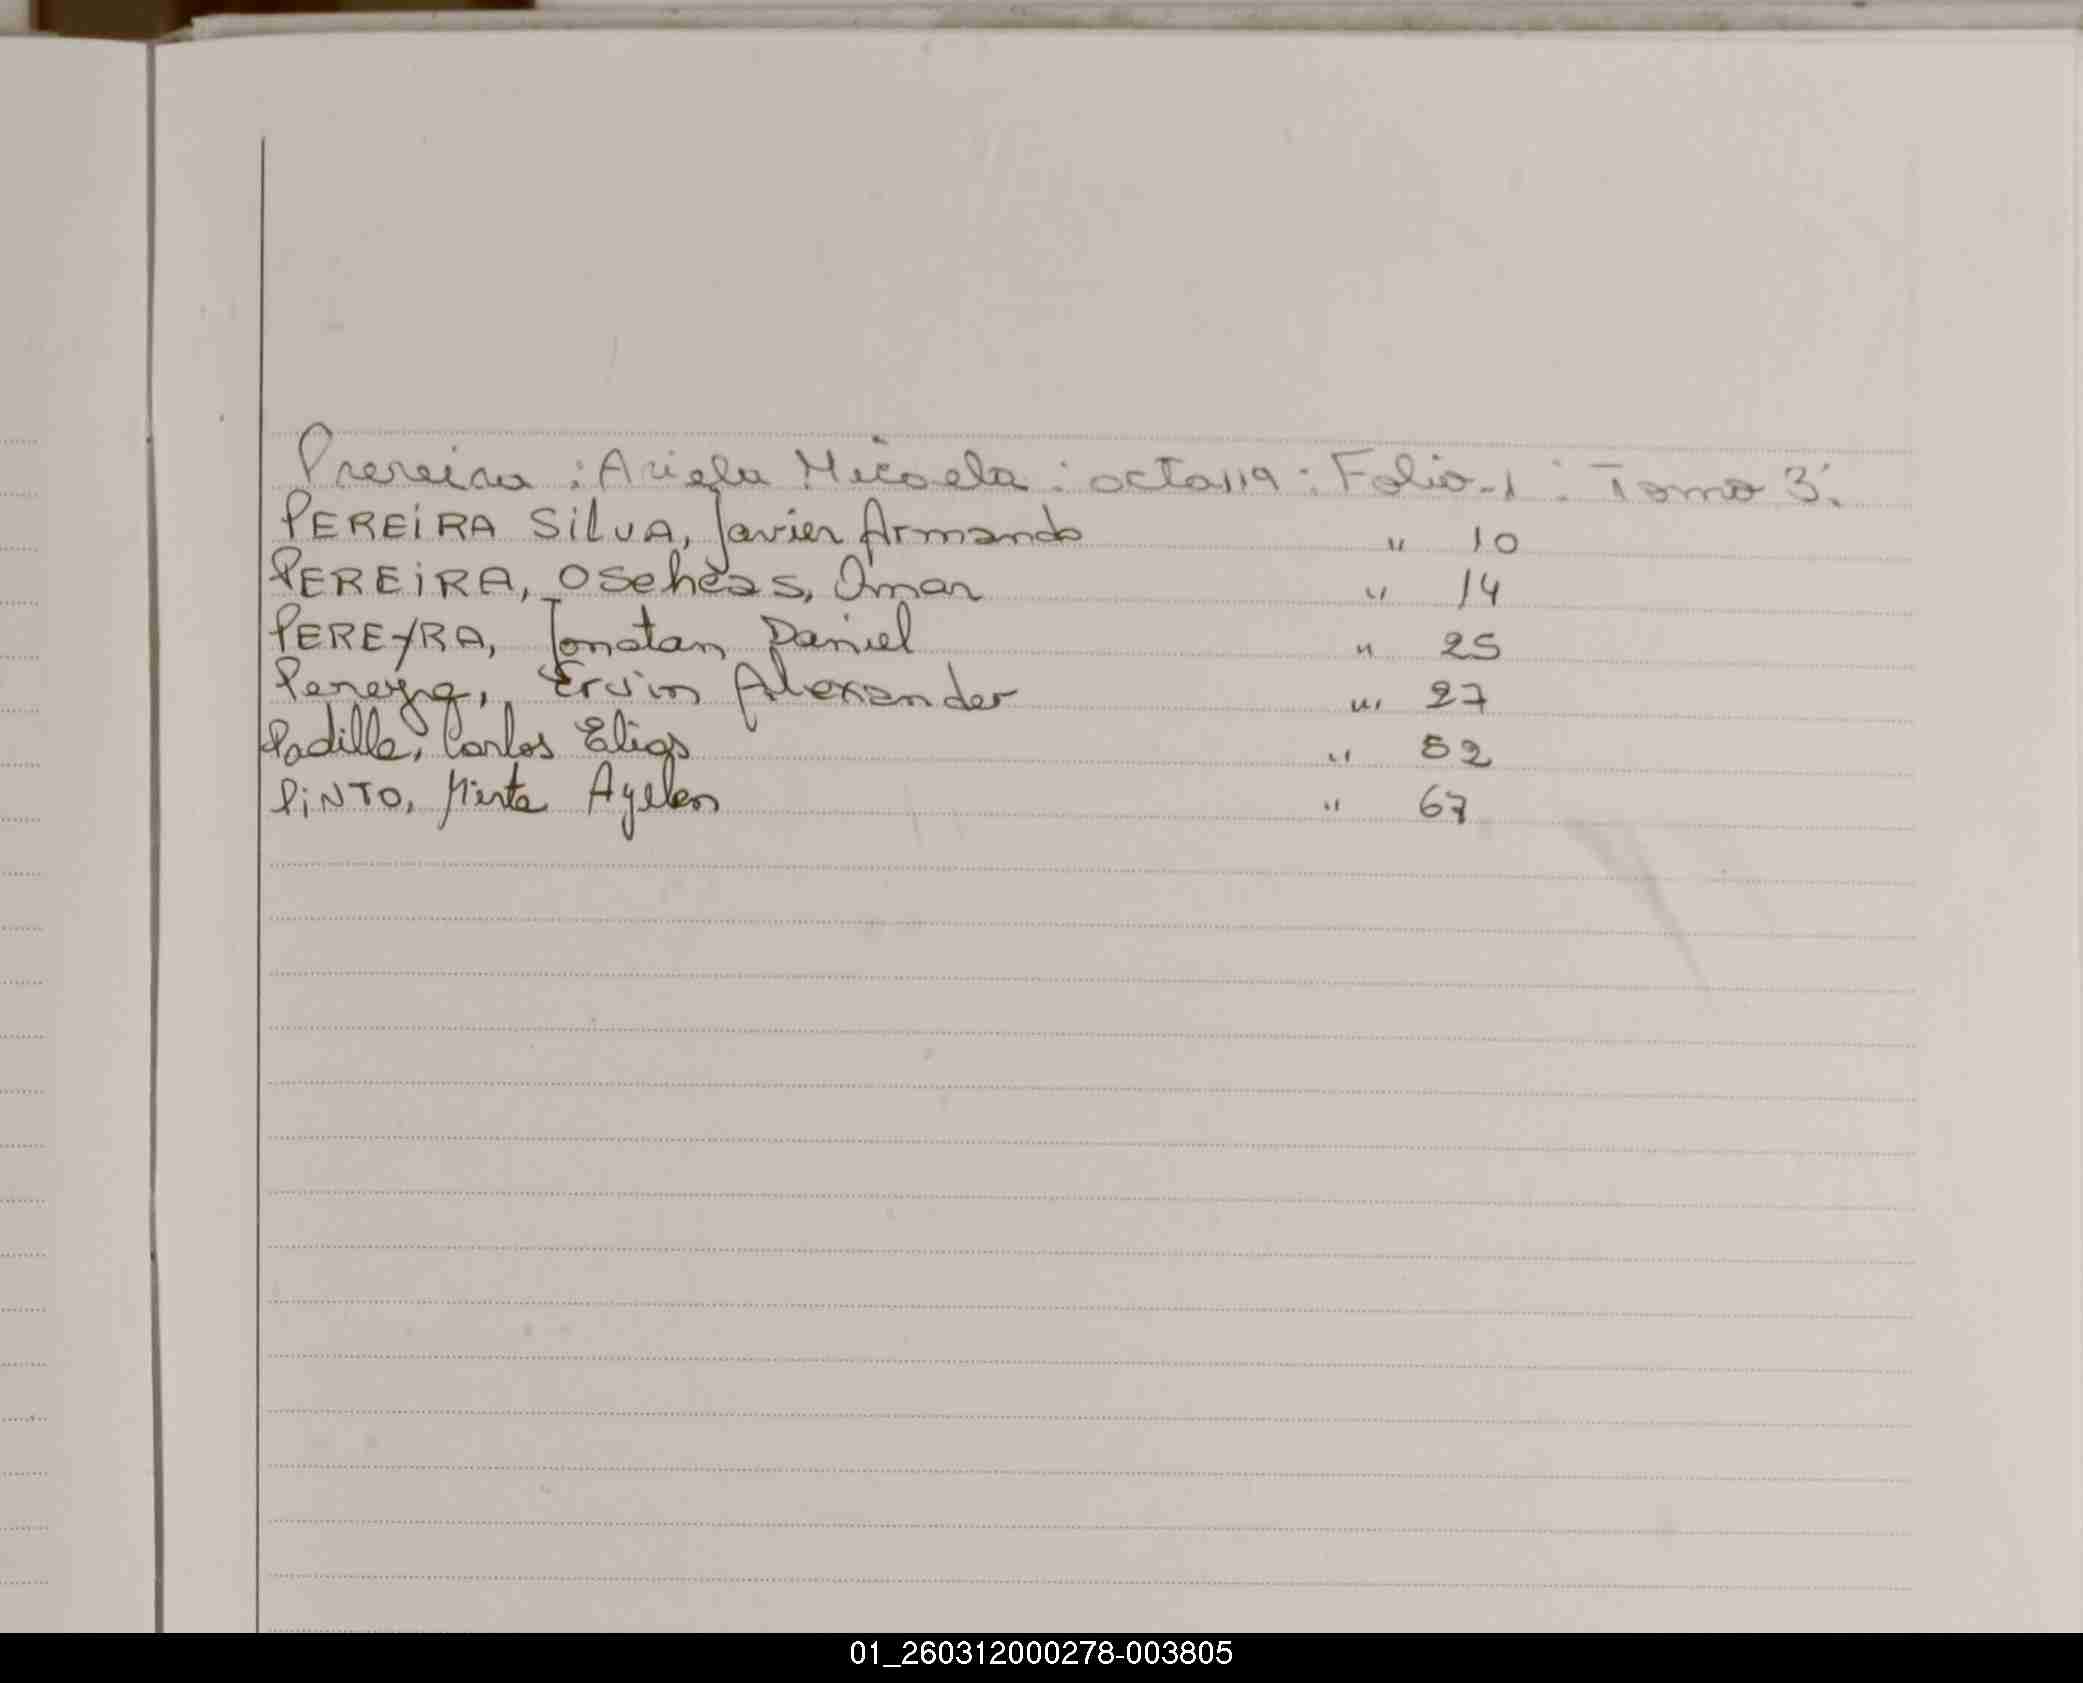 Prereira : Ariela Micaela : octa 119 : Folio-1 : Tomo 3.
PEREiRA SiLVA, Javier Armando " 10
PEREiRA, Oseheas, Omar " 14
PEREYRA, Jonatan Daniel " 25
Pereyra, Ervin Alexander " 27
Padilla, Carlos Elias " 52
PiNTO, Mirta Ayelen " 67
01_260312000278-003805